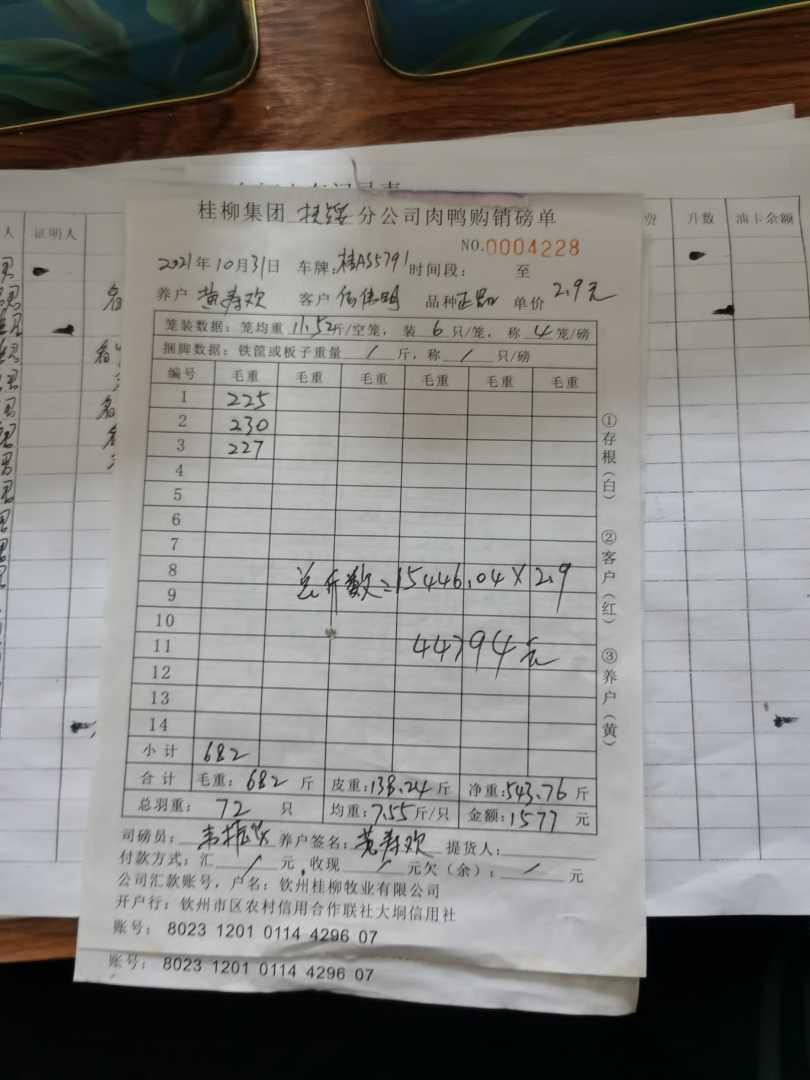 桂柳集团 扶绥 分公司肉鸭购销磅单
NO.0004228
2021年10月31日 车牌:桂AS5791 时间段: 至
养户 黄寿欢 客户 伍伟明 品种 正品 单价 2.9元
笼装数据: 笼均重 11.52斤/空笼, 装 6 只/笼, 称 4 笼/磅
捆脚数据: 铁筐或板子重量 / 斤, 称 / 只/磅
编号 毛重 毛重 毛重 毛重 毛重 毛重
1 225
2 230
3 227
4
5
6
7
8
9
总斤数=15446.04×2.9
10
11
44794元
12
13
14
小计 682
合计 毛重: 682 斤 皮重:138.24斤 净重:543.76斤
总羽重: 72 只 均重:7.55斤/只 金额:1577 元
司磅员: 养户签名: 黄寿欢 提货人:
付款方式: 汇 / 元, 收现 / 元欠(余): / 元
公司汇款账号, 户名: 钦州桂柳牧业有限公司
开户行: 钦州市区农村信用合作联社大垌信用社
账号: 8023 1201 0114 4296 07
账号: 8023 1201 0114 4296 07
①存根(白)
②客户(红)
③养户(黄)
人 证明人
费 升数 油卡余额